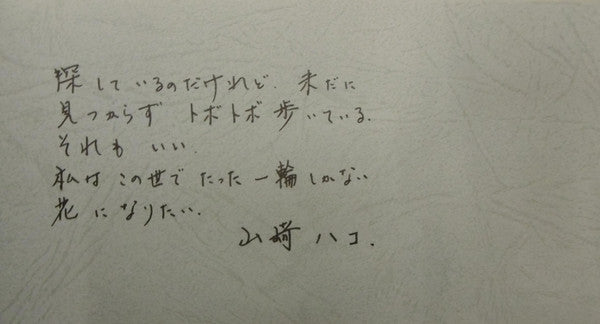 探しているのだけれど、未だに
見つからず トボトボ歩いている.
それも いい.
私は この世で たった一輪しかない
花に なりたい.
山崎 ハコ.